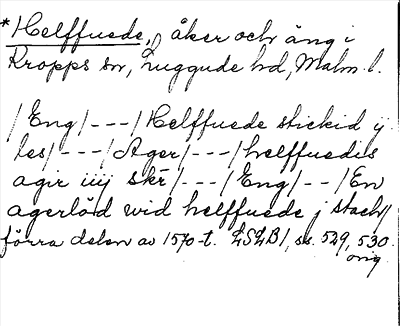 *Helffuede, åker och äng i
Kropps sn, Luggude hd, Malm. l.
/Eng/---/Helffuede stickid ij
les/---/Ager/---/helffuedis
agir iiij skr̄/---/Eng/--/En
agerlöd wid helffuede j stack//
förra delen av 1570-t. LSLB1, ss. 529, 530.
orig.